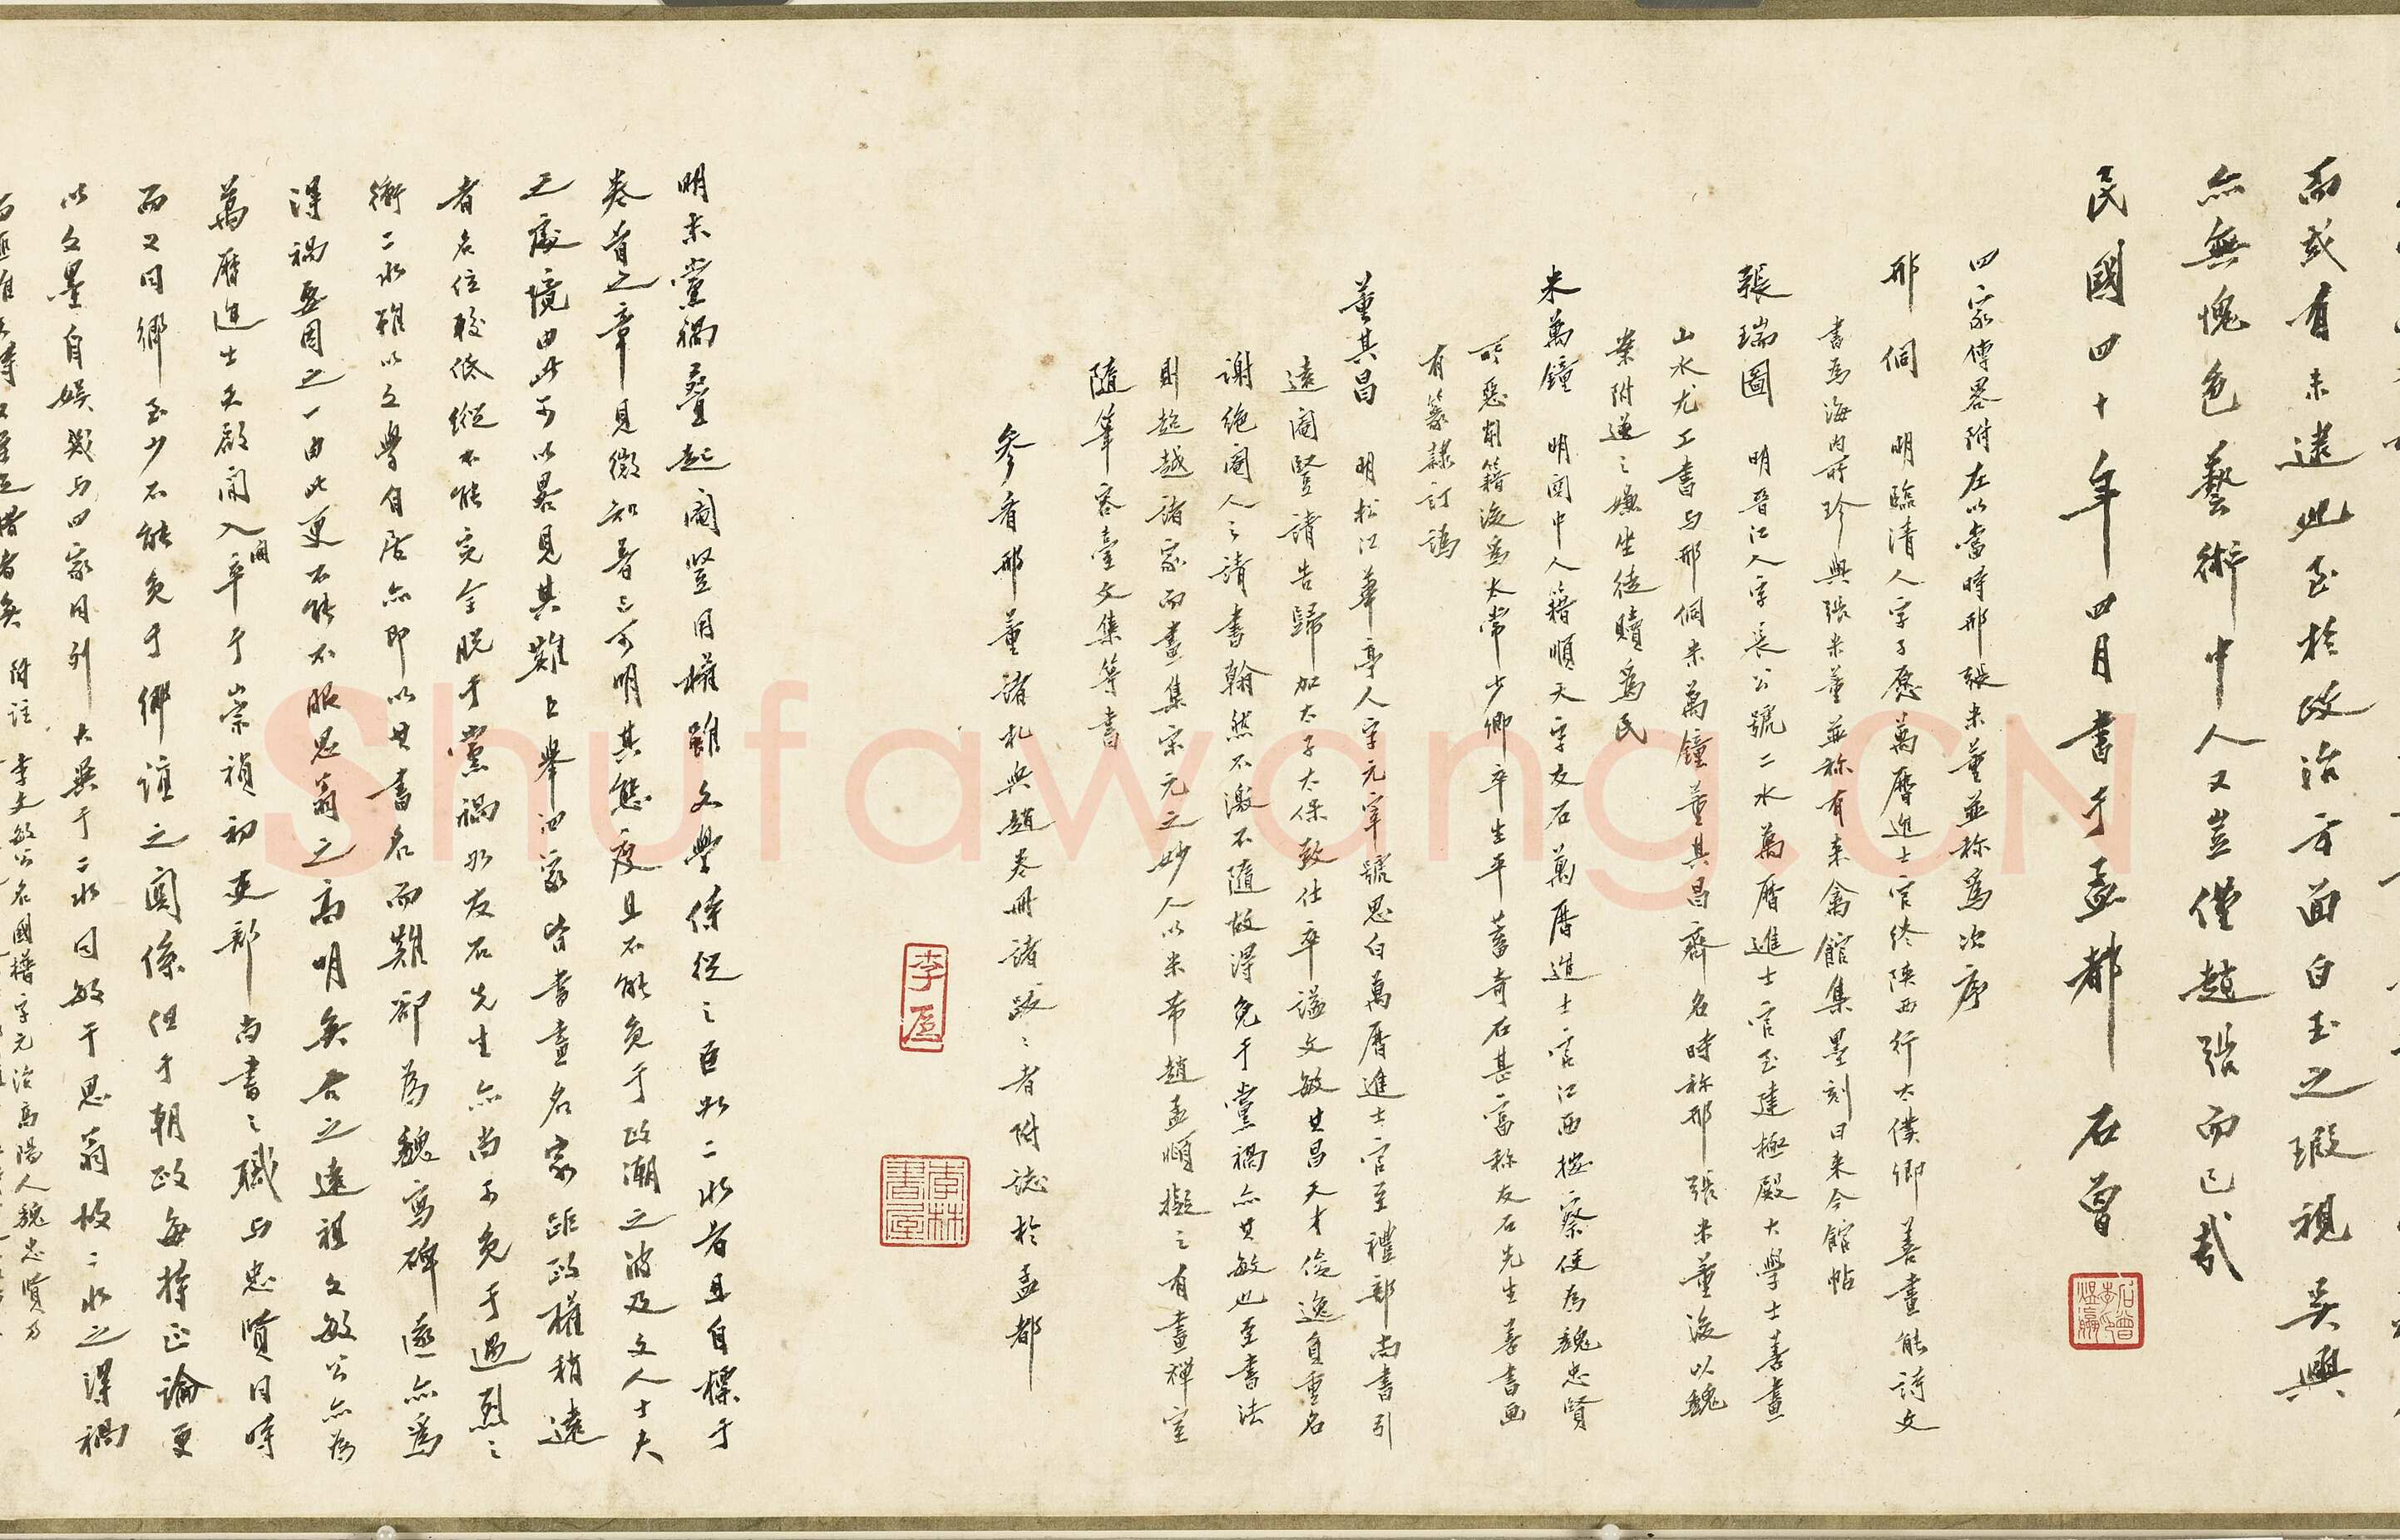 而或有未逮此至於政治方面白玉之瑕視吳興
亦無愧色藝術中人又豈僅趙張而已哉
民國四十年四月書于孟都 石曾
四家傳畧附左以當時邢張米董並称爲次序
邢侗 明臨清人字子愿萬曆進士官終陝西行太僕卿 善畫能詩文
書爲海内所珍與張米董並称有來禽館集墨刻曰来今館帖
張瑞圖 明晋江人字長公號二水萬曆進士官至建極殿大學士善畫
山水尤工書与邢侗米萬鐘董其昌齊名時称邢張米董後以魏
案附逆之嫌坐徒贖爲民
米萬鐘 明関中人籍順天字友石萬曆進士官江西按察使为魏忠賢
所惡削籍後爲太常少卿卒生平蓄奇石甚富称友石先生善書画
有篆隸訂譌
董其昌 明松江華亭人字元宰號思白萬曆進士官至禮部尚書引
遠閹豎請告歸加太子太保致仕卒謚文敏其昌天才俊逸負重名
謝絶閹人之請書翰然不激不隨故得免于黨禍亦其敏也至書法
則超越諸家而畫集宋元之妙人以米芾趙孟頫擬之有畫禅室
隨筆容臺文集等書
參看邢董諸札與趙卷冊諸跋之者附誌於孟都
李屋
李林書屋
明末黨禍疊起閹豎用權雖文學侍從之臣如二水者且自標于
卷首之章見微知著已可明其態度且不能免于政潮之波及文人士大
之處境由此可以畧見其難上舉四家皆書畫名家距政權稍遠
者名位較低縱不能完全脱于黨禍如友石先生亦尚不免于過烈之
衝二水雖以文學自居亦即以其書名而難卻为魏寫碑遂亦爲
得禍要因之一由此更不能不服思翁之高明矣石之遠祖文敏公亦为
萬曆進士天啟間入閣卒于崇禎初吏部尚書之職与忠賢同時
而又同鄉至少不能免于鄉誼之関係但于朝政每持正論更
以文墨自娱與与四家同列大異于二水同敏于思翁故二水之得禍
附註 李文敏公名國𣚴字元治高陽人魏忠賢乃
Shufawang.CN